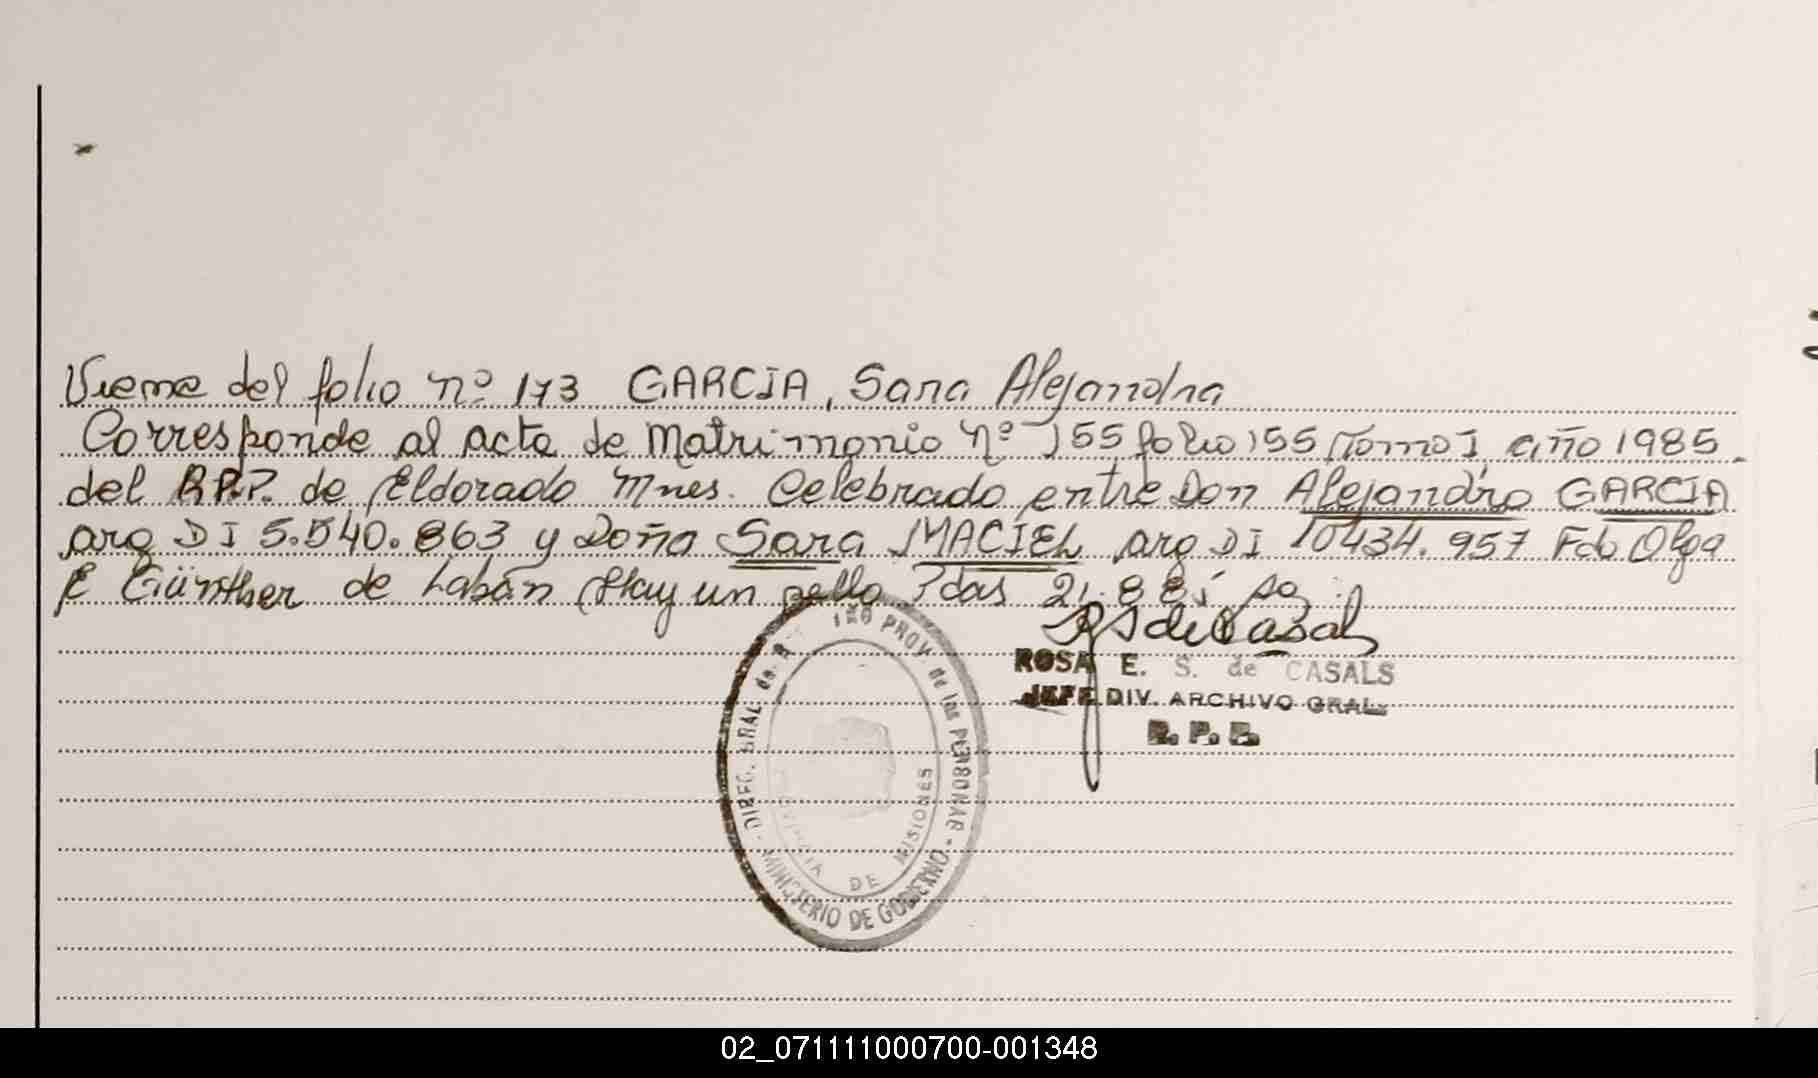 Viene del folio nº 173 GARCIA, Sara Alejandra
Corresponde al acta de Matrimonio nº 155 folio 155 Tomo I, año 1985
del R.P.P. de Eldorado Mnes. Celebrado entre Don Alejandro GARCIA
arg DI 5.540.863 y Doña Sara MACIEL arg DI 10434.957 Fdo Olga
E Günther de Labán Hay un sello Pdas 21.88
ROSA E. S. de CASALS
JEFE DIV. ARCHIVO GRAL.
R. P. P.
DIREC. GRAL. de PROV. de las PERSONAS
MINISTERIO DE GOBIERNO
PROVINCIA DE MISIONES
02_071111000700-001348